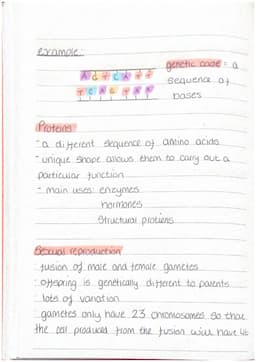 example:
genetic code = a
sequence of
bases
A G T C A T T
T C A G T A A
Proteins
- a different sequence of amino acids
- unique shape allows them to carry out a
particular function
- main uses: enzymes
hormones
structural proteins
Sexual reproduction
- fusion of male and female gametes
- offspring is genetically different to parents
- lots of variation
- gametes only have 23 chromosomes so that
the cell produced from the fusion will have 46